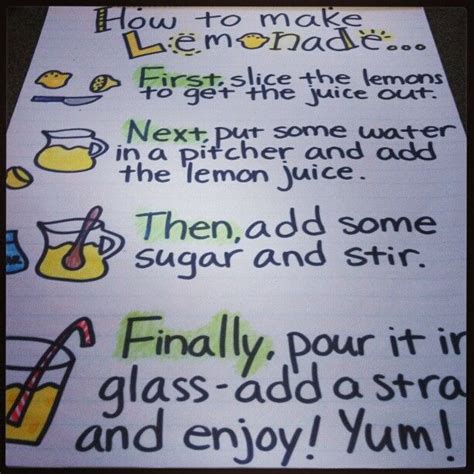 How to make
Lemonade...
First, slice the lemons
to get the juice out.
Next, put some water
in a pitcher and add
the lemon juice.
Then, add some
sugar and stir.
Finally, pour it in
glass-add a stra
and enjoy! Yum!